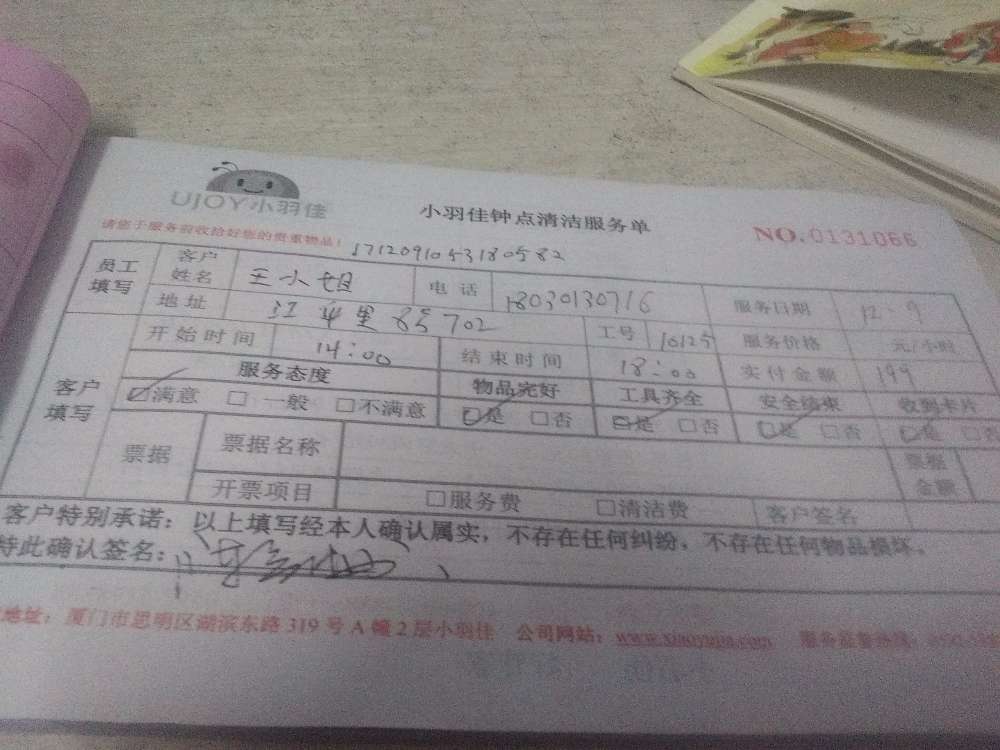 UJOY小羽佳
小羽佳钟点清洁服务单
NO.0131066
请您于服务前收拾好您的贵重物品！
1712091053180582
员工填写 客户姓名 王小姐 电话 18030130716 服务日期 12.9
地址 85702 工号 10125 服务价格 元/小时
客户填写 开始时间 14:00 结束时间 18:00 实付金额 199
服务态度 物品完好 工具齐全 安全结束 收到卡片
☑满意 □一般 □不满意 ☑是 □否 ☑是 □否 ☑是 □否 ☑是 □否
票据 票据名称 票据金额
开票项目 □服务费 □清洁费 客户签名
客户特别承诺：以上填写经本人确认属实，不存在任何纠纷，不存在任何物品损坏。
特此确认签名：
地址：厦门市思明区湖滨东路 319 号 A 幢 2 层小羽佳 公司网站：www.xiaoyujia.com 服务监督热线：